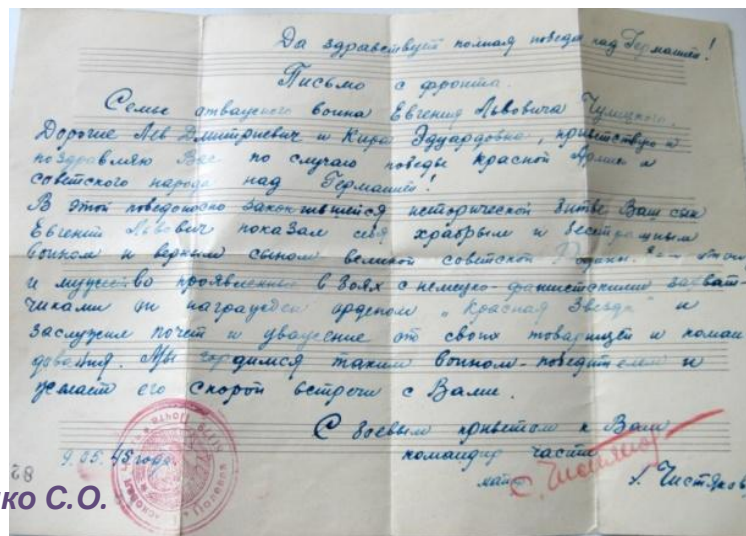 Да здравствует полная победа над Германией!
Письмо с фронта.
Семье отважного воина Евгения Львовича
Дорогие Лев Дмитриевич и Кира Эдуардовна, приветствую и
поздравляю Вас по случаю победы Красной Армии и
советского народа над Германией!
В этой победоносно закончившейся исторической битве Ваш сын
Евгений Львович показал себя храбрым и бесстрашным
воином и верным сыном великой советской Родины. За
и мужество проявленные в боях с немецко-фашистскими захват-
чиками он награжден орденом "Красная Звезда" и
заслужил почет и уважение от своих товарищей и коман
дования. Мы гордимся таким воином-победителем и
желаем его скорой встречи с Вами.
С боевым приветом к Вам
9.05.45 года. командир части
А. Чистяков
82
ко С.О.